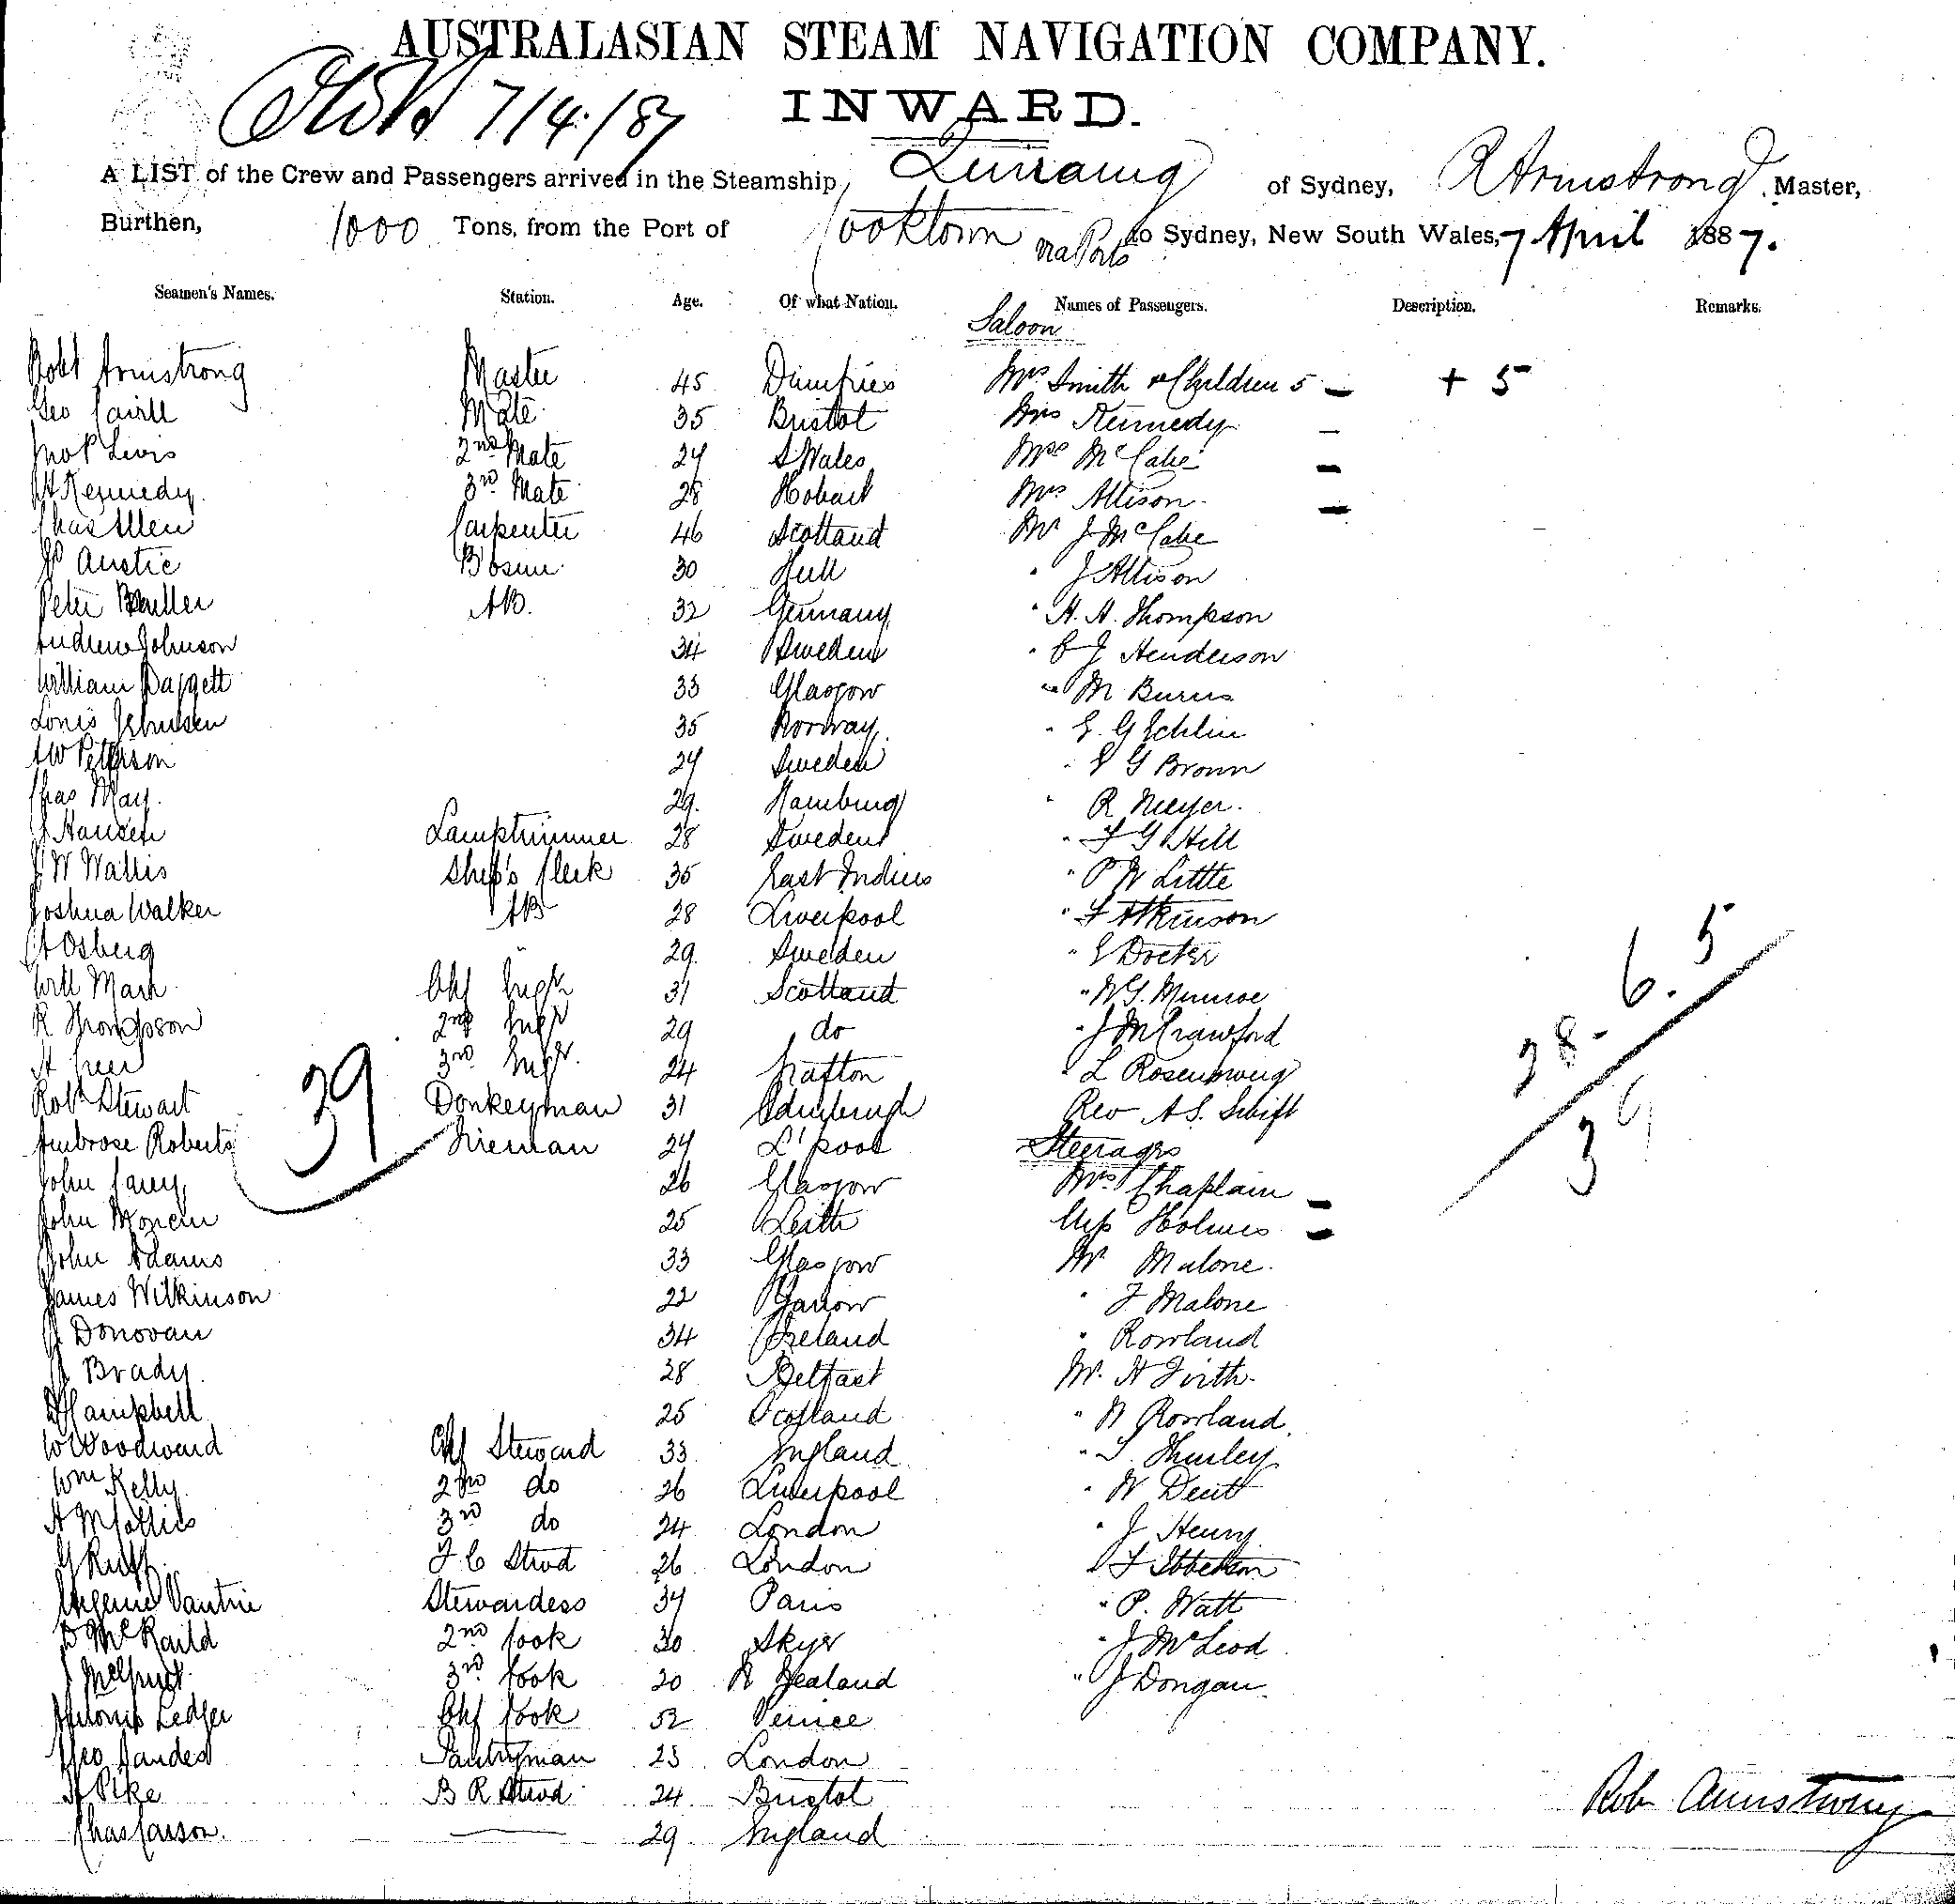 AUSTRALASIAN STEAM NAVIGATION COMPANY.
7/4/87 INWARD.
A LIST of the Crew and Passengers arrived in the Steamship, of Sydney, R Armstrong Master,
Burthen, 1000 Tons, from the Port of Cooktown via Ports to Sydney, New South Wales, 7 April 1887.
Seamen's Names. Station. Age. Of what Nation. Names of Passengers. Description. Remarks.
Saloon
Robt Armstrong Master 45 Dumfries Mrs Smith & Children 5 - + 5
Geo Mate 35 Bristol Mrs Kennedy -
2nd Mate 24 S Wales Mrs McCabe -
Kennedy 3rd Mate 28 Hobart Mrs Allison -
Chas Allen Carpenter 46 Scotland Mr J McCabe
Austie Bosun 30 Hull " J Allison
Peter AB. 32 Germany " A. A. Thompson
Andrew Johnson 34 Sweden " C J Henderson
William Daggett 33 Glasgow " M Burns
Louis 35 Norway " E. G Echlin
AW Peterson 24 Sweden " G Brown
Chas May 29. Hamburg " R Meyer.
J Hansen Lamptrimmer 28 Sweden " F G Hill
J W Wallis Ship's Clerk 35 East Indies " P W Little
Joshua Walker AB 28 Liverpool " F Atkinson
A Osberg " 29. Sweden " Docker
Will Mark Chf Engr 31 Scotland " W G. Munroe
R Thompson 2nd Engr 29 do " J M Crawford
A Greer 3rd Engr. 24 Grafton " L Rosenzweig
Robt Stewart Donkeyman 31 Edinburgh Rev A S. Swift
Ambrose Roberts Fireman 24 L'pool Steerage
John 26 Glasgow Mrs Chaplain -
John 25 Leith Holmes -
John Adams 33 Glasgow Mr Malone.
James Wilkinson 22 Jarrow " J Malone
J Donovan 34 Ireland " Rowland
J Brady 28 Belfast Mr. H Firth.
Campbell 25 Scotland " W Rowland.
W Woodward Chf Steward 33 England " Thurley
Wm Kelly 2nd do 26 Liverpool " W Dent
A M Collies 3rd do 24 London " J Henry
F C Stwd 26 London " F Ibbetson
Stewardess 34 Paris " P. Watt
McRaild 2nd Cook 30 Skye " J McLeod
3rd Cook 20 N Zealand " J Dongan.
Ledger Chf Cook 52 Venice
Geo Sandes Pantryman 23 London
A Pike B R Stwd 24 Bristol
Chas Carson. 29 England
39
28. 6. 5
39
Rob Armstrong